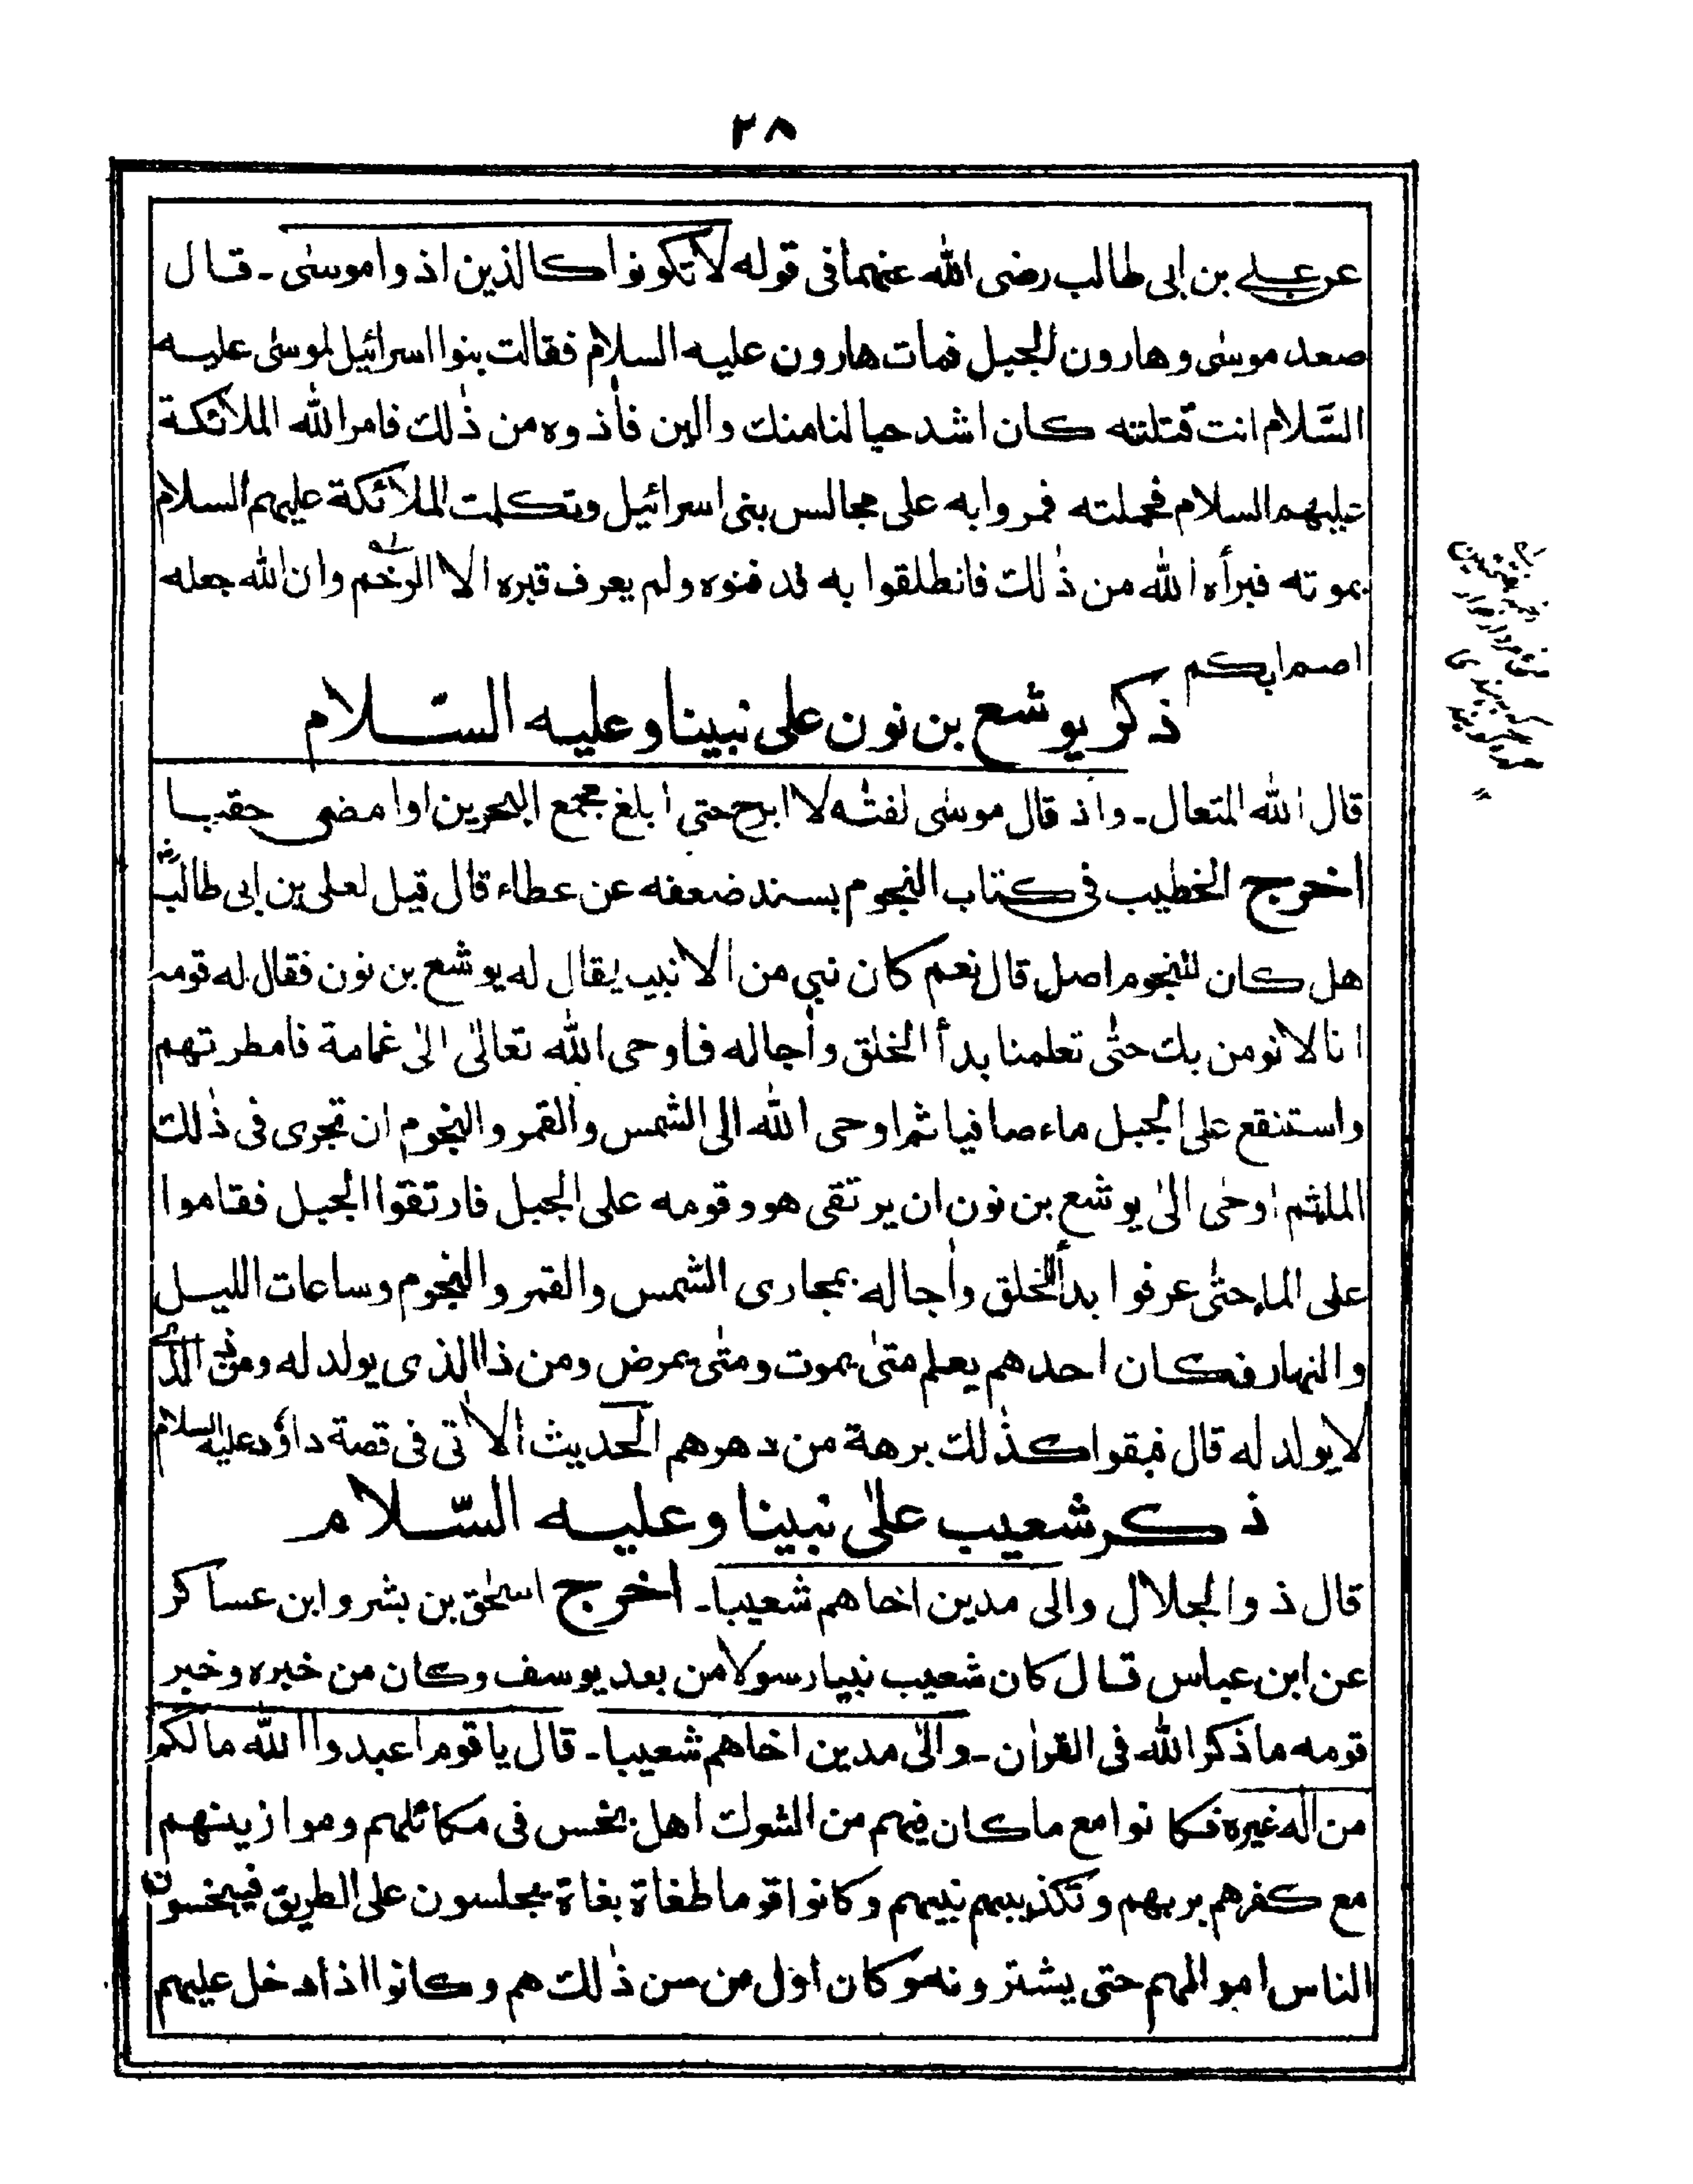 ٢٨
عن علي بن ابى طالب رضى الله عنهما فى قوله لا تكونوا كالذين اذوا موسى ـ قال
صعد موسى وهارون الجبل فمات هارون عليه السلام فقالت بنوا اسرائيل لموسى عليه
السّلام انت قتلته كان اشد حبا لنا منك والين فأذوه من ذٰلك فامر الله الملائكة
عليهم السلام فحملته فمروا به على مجالس بنى اسرائيل وتكلمت الملائكة عليهم السلام
بموته فبرأه الله من ذٰلك فانطلقوا به فدفنوه ولم يعرف قبره الا الرخم وان الله جعله
اصم ابكم
ذكر يوشع بن نون على نبينا وعليه السّلام
قال الله المتعال ـ واذ قال موسى لفتٰه لا ابرح حتى ابلغ مجمع البحرين او امضى حقبا
اخرج الخطيب فى كتاب النجوم بسند ضعفه عن عطاء قال قيل لعلى بن ابى طالب رض
هل كان للنجوم اصل قال نعم كان نبي من الانبيب يقال له يوشع بن نون فقال له قومه
انا لا نومن بك حتّٰى تعلمنا بدأ الخلق وأجاله فاوحى الله تعالىٰ الىٰ غمامة فامطرتهم
واستنقع على الجبل ماء صافيا ثم اوحى الله الى الشمس والقمر والنجوم ان تجرى فى ذٰلك
الملثم اوحٰى الىٰ يوشع بن نون ان يرتقى هو وقومه على الجبل فارتقوا الجبل فقاموا
على الماءحتّٰى عرفوا بدأ الخلق وأجاله بمجارى الشمس والقمر والنجوم وساعات الليل
والنهار فكان احدهم يعلم متىٰ يموت ومتٰى يمرض ومن ذا الذى يولد له ومن الذى
لا يولد له قال فبقوا كذٰلك برهة من دهرهم الحديث الأتى فى قصة داؤد عليه السلام
ذكر شعيب علىٰ نبينا وعليه السّلام
قال ذو الجلال والى مدين اخاهم شعيبا ـ اخرج اسحٰق بن بشر وابن عساكر
عن ابن عباس قال كان شعيب نبيا رسولا من بعد يوسف وكان من خبره وخبر
قومه ما ذكر الله فى القرأن ـ والىٰ مدين اخاهم شعيبا ـ قال يا قوم اعبدوا الله ما لكم
من اله غيره فكانوا مع ما كان فيهم من الشرك اهل بخس فى مكائلهم وموازينهم
مع كفرهم بربهم وتكذيبهم نبيهم وكانوا قوما طغاة بغاة يجلسون على الطريق فيبخسون
الناس اموالهم حتى يشترونه وكان اول من سن ذٰلك هم وكانوا اذا دخل عليهم